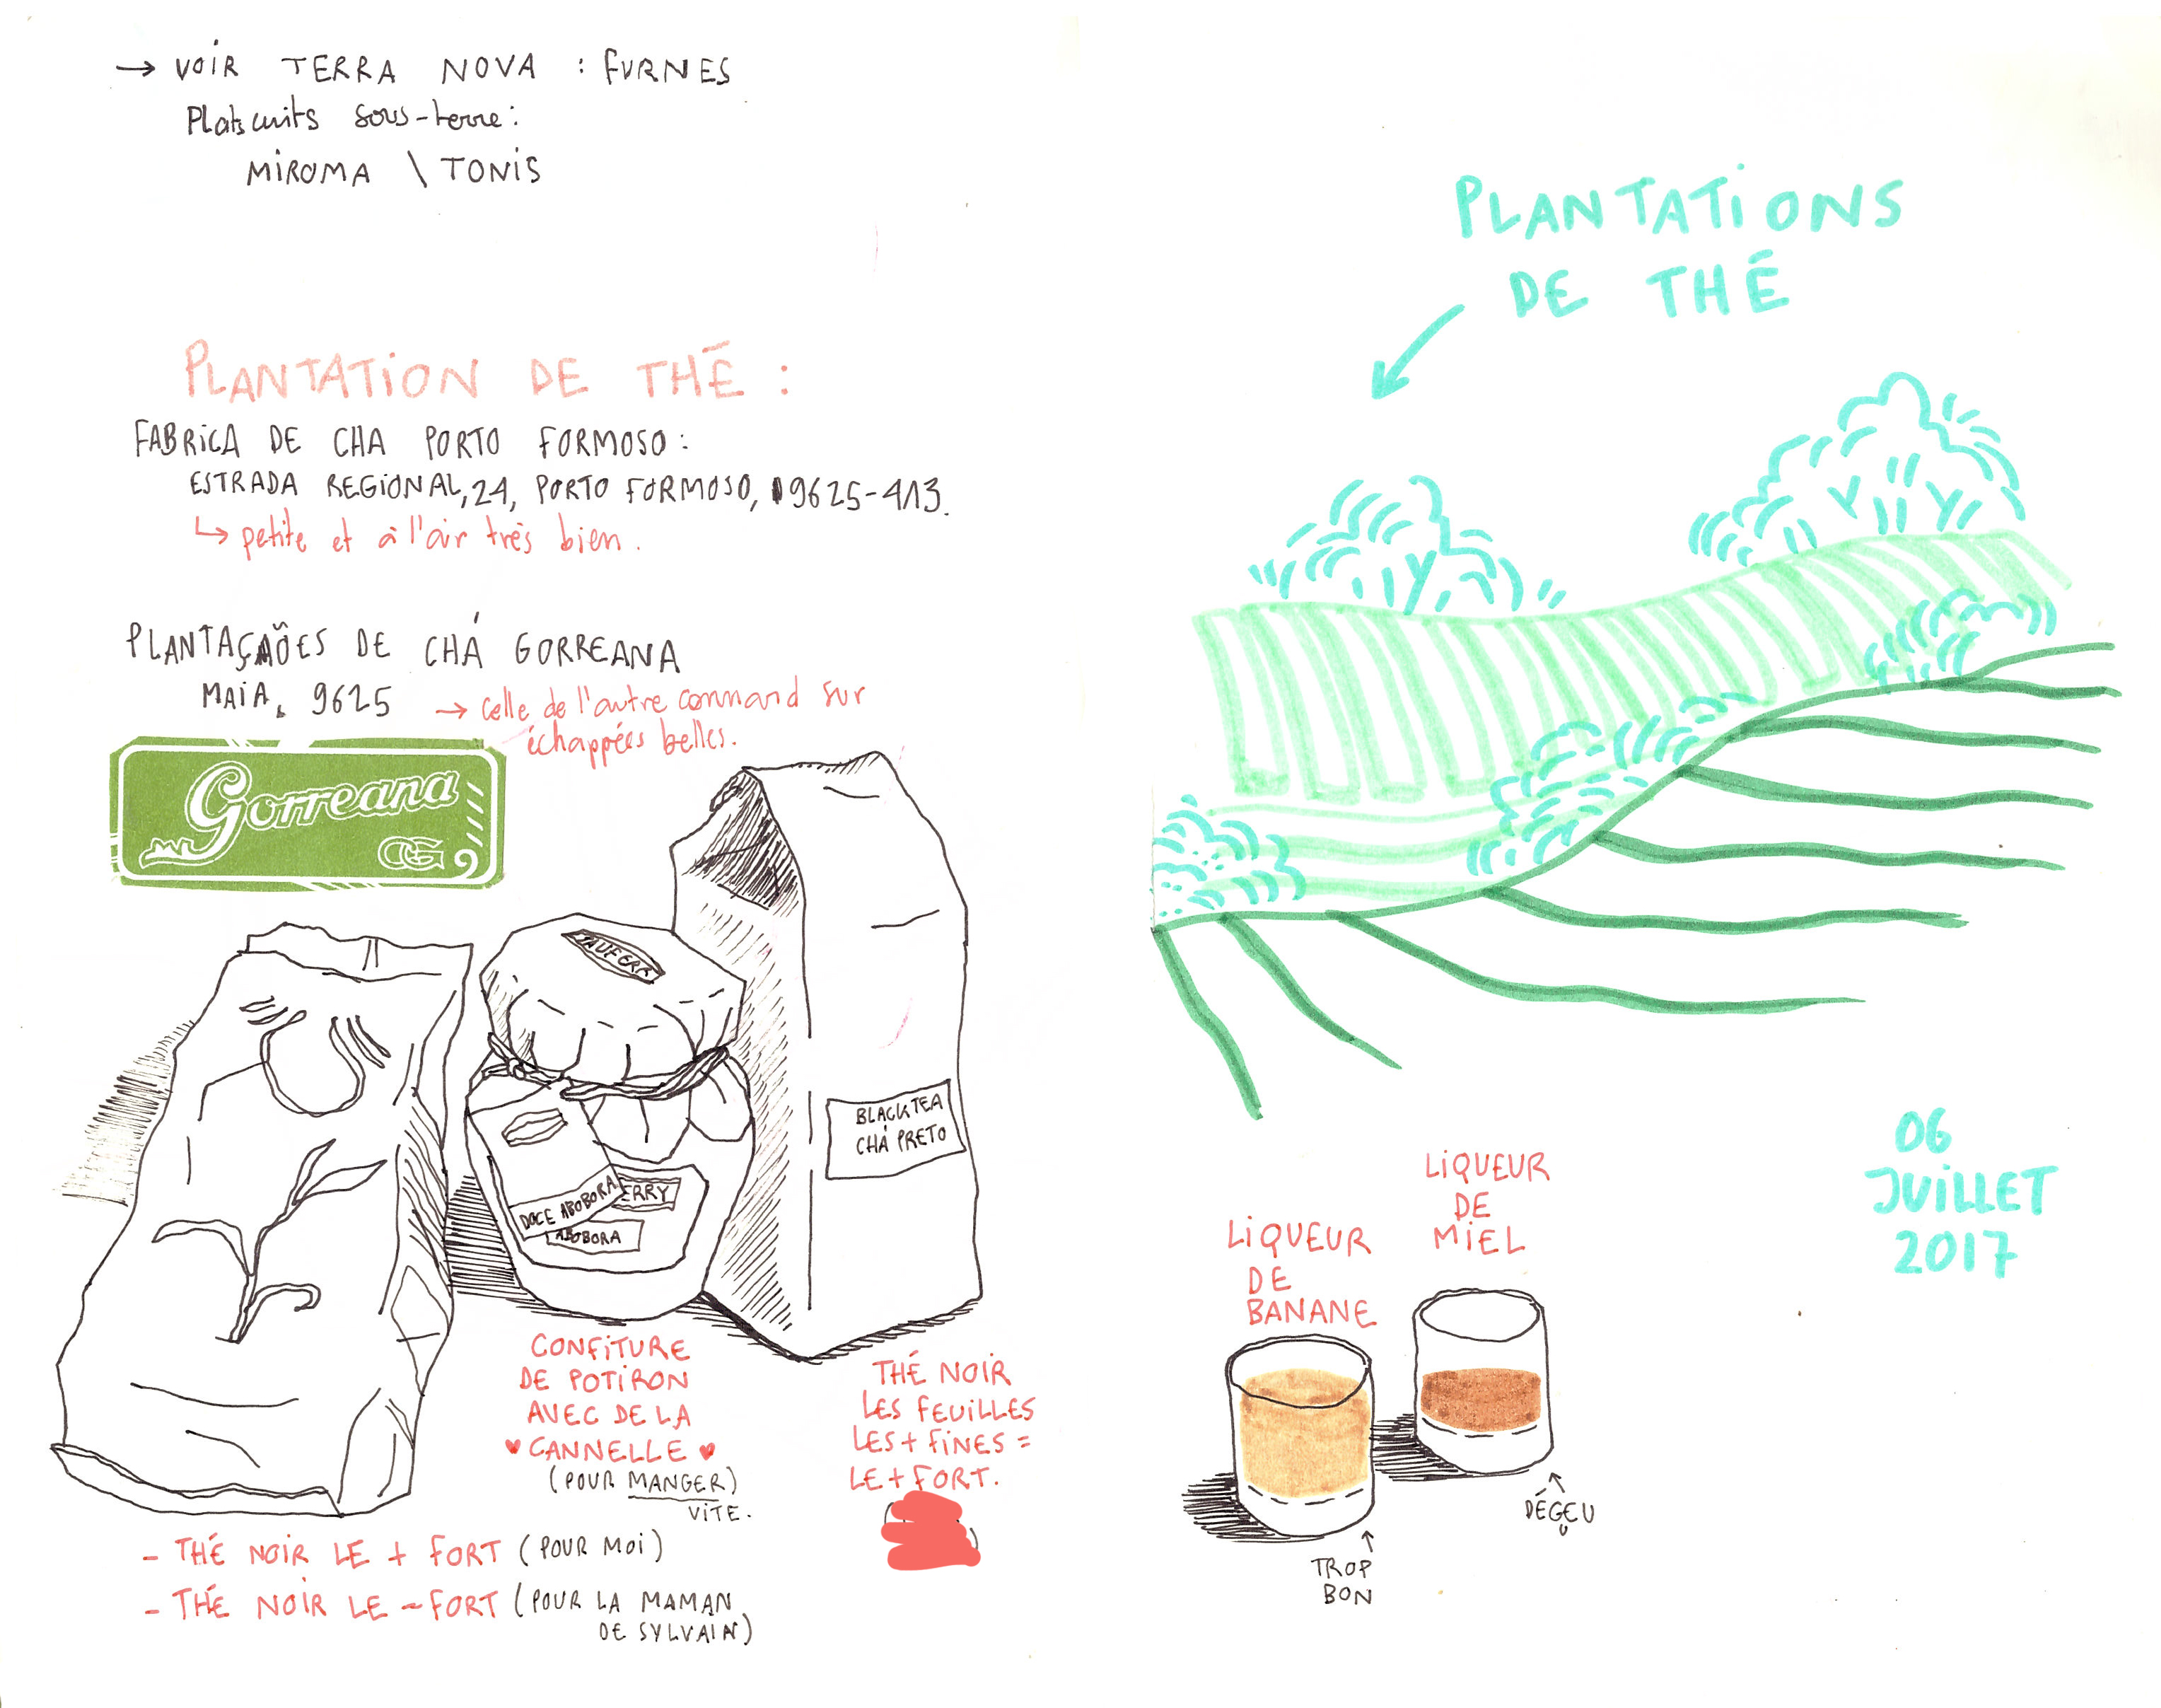 → VOIR TERRA NOVA : FURNES
Plats cuits sous-terre:
MIROMA \ TONIS
PLANTATION DE THÉ :
FABRICA DE CHA PORTO FORMOSO:
ESTRADA REGIONAL, 24, PORTO FORMOSO, 9625-413.
↳ petite et à l'air très bien.
PLANTAÇÕES DE CHÁ GORREANA
MAIA, 9625 → celle de l'autre connard sur
échappées belles.
Gorreana
CG
BLACK TEA
CHÁ PRETO
ERRY
DOCE ABOBORA
ABOBORA
CONFITURE
DE POTIRON
AVEC DE LA
♥ CANNELLE ♥
(POUR MANGER)
VITE.
THÉ NOIR
LES FEUILLES
LES + FINES =
LE + FORT.
- THÉ NOIR LE + FORT (POUR MOI)
- THÉ NOIR LE - FORT (POUR LA MAMAN
DE SYLVAIN)
PLANTATIONS
DE THÉ
06
JUILLET
2017
LIQUEUR
DE
MIEL
DÉGEU
LIQUEUR
DE
BANANE
TROP
BON